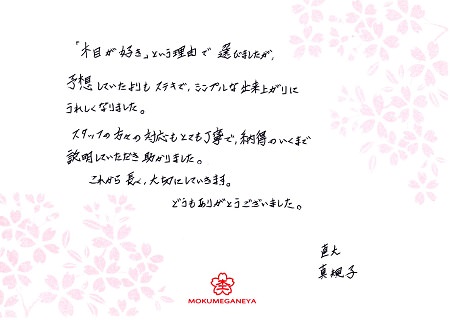 「木目が好き」という理由で 選びましたが、
予想していたよりもステキで、シンプルな出来上がりに
うれしくなりました。
スタッフの方々の対応もとても丁寧で、納得のいくまで
説明していただき助かりました。
これから長く、大切にしていきます。
どうもありがとうございました。
直大
真規子
MOKUMEGANEYA